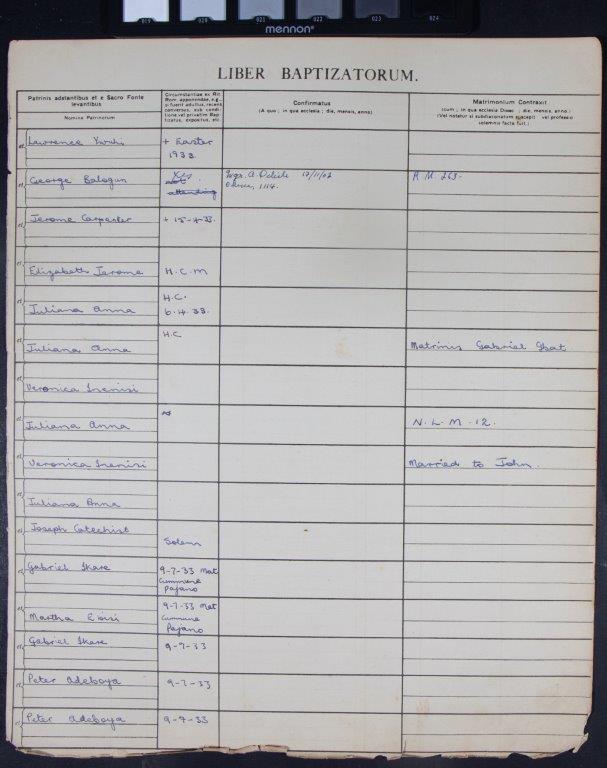 019 020 021 022 023 024
mennon
LIBER BAPTIZATORUM.
Patrinis adstantibus et e Sacro Fonte
levantibus
Nomina Patrinorum
Circumstantiae ex Rit.
Rom. apponendae, e.g.,
si fuerit adultus, recens
conversus, sub condi-
tione vel privatim Bap-
tizatus, expositus, etc.
Confirmatus
(A quo; in qua ecclesia; die, mensis, anno)
Matrimonium Contraxit
(cum; in qua ecclesia Dioec; die, mensis, anno.)
(Vel notatur si subdiaconatum suscepit vel professio
solemnis facta fuit.)
et Lawrence
+ Easter
1933
et George Balogun
Yes
not
attending
17/11/02
1114.
R.M. 263.
et Jerome Carpenter
+ 15-4-33.
et Elizabeth Jerome
H.C.M
et Juliana Anna
H.C.
6.4.33.
et Juliana Anna
H.C
Matrinis Gabriel
et Veronica
et Juliana Anna
N.L.M.12.
et Veronica
Married to John.
et Juliana Anna
et Joseph Catechist
Solemn
et Gabriel Ikare
9-7-33 Mat
Cummune
Pagano
et Martha
9-7-33 Mat
Cummune
Pagano
et Gabriel Ikare
9-7-33
et Peter Adeboya
9-7-33
et Peter Adeboya
9-7-33